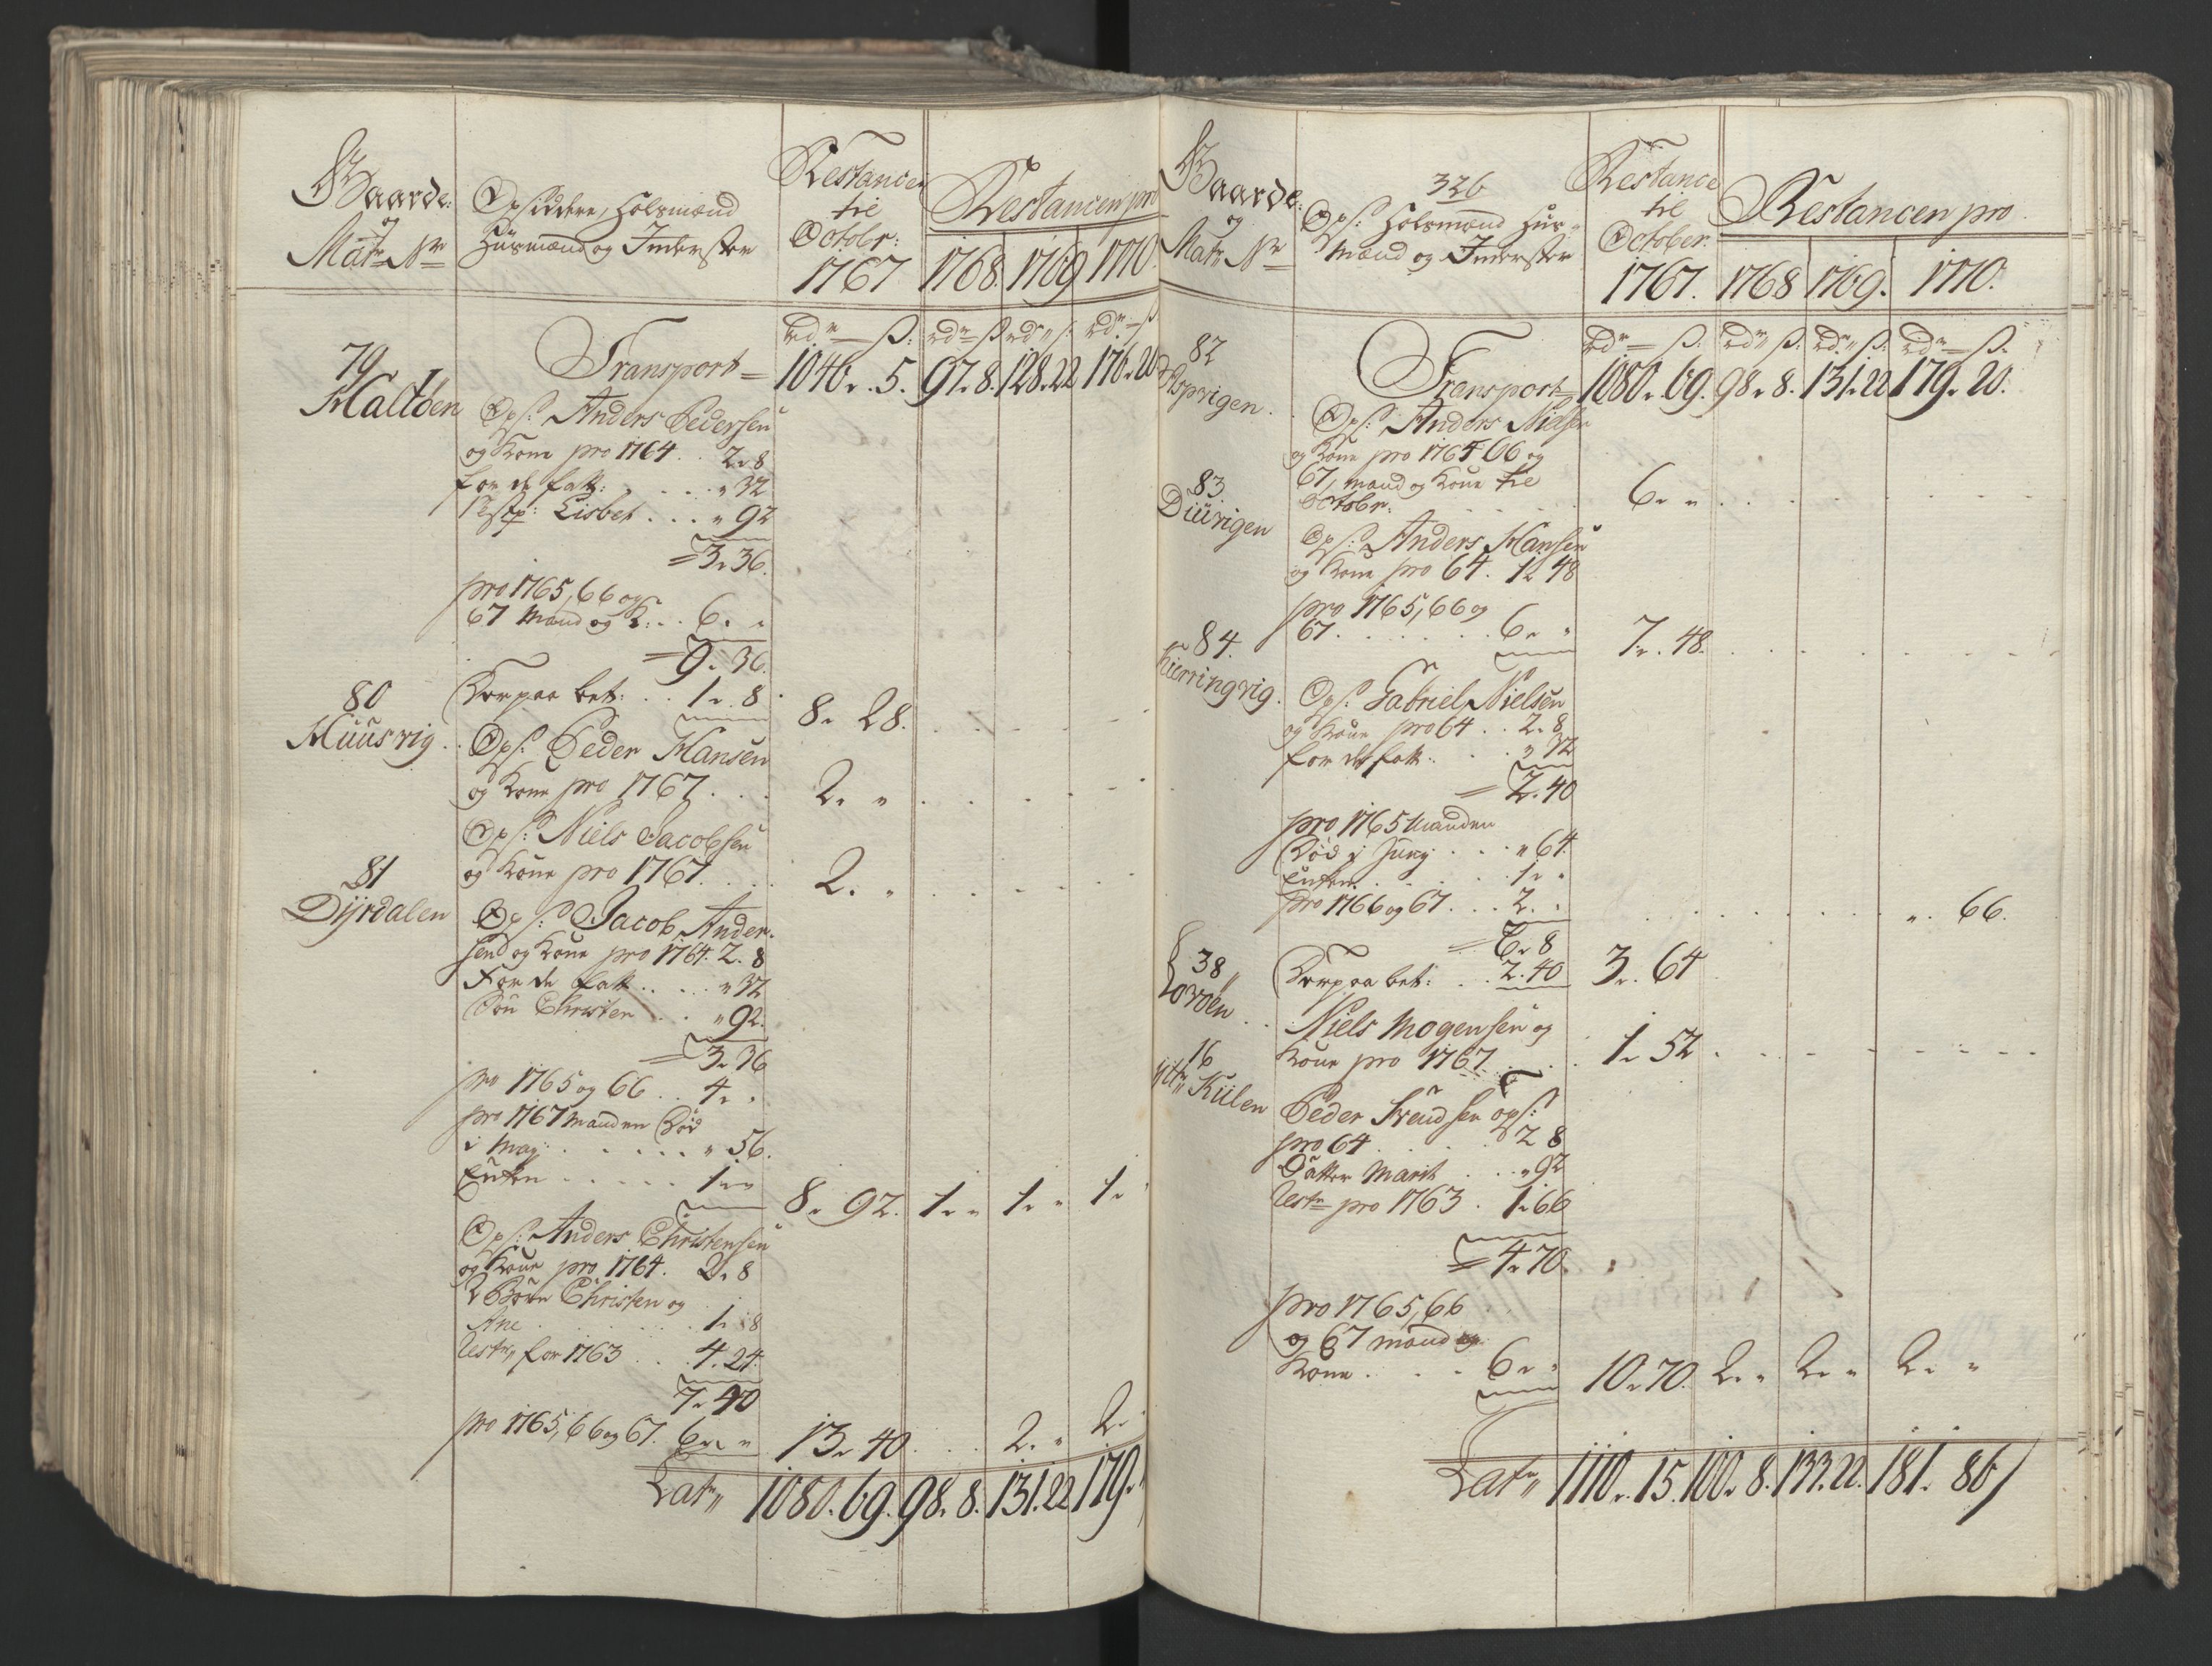 Gaarde:
og
Matr: Nr
Opsiddere, Holsmænd
Huusmænd og Inderster
Restance
til
Octobr:
1767
Restancen pro
1768. 1769 1770.
rdr ß: rdr ß rdr ß: rdr ß
79
Maltøen
Transport 1046. 5. 97. 8. 128. 22 176. 20
Ops: Anders Pedersen
og Kone pro 1764 . . 2. 8
for de fatt: . . . . " 32
Lisbet . . . " 92
= 3. 36.
pro 1765, 66 og
67 Mand og K: . . 6. "
= 9. 36.
Derpaa bet: . . 1. 8
8. 28.
80
Muusvig
Ops: Peder Hansen
og Kone pro 1767 . . .
2. "
Ops: Niels Jacobsen
og Kone pro 1767. . . .
2. "
81
Dyrdalen
Ops: Jacob Ander-
sen og Kone pro 1764. 2. 8
For de fatt . . . . " 32
Søn Christen . . " 92.
= 3. 36
pro 1765 og 66 . . 4. "
pro 1767 Manden Død
i May . . . . . . " 56.
Enken . . . . . 1. "
8. 92. 1. " 1. " 1. "
Ops: Anders Christensen
og Kone pro 1764. 2. 8
2 Børn Christen og
Ane . . . . . . . 1. 8
Restr for 1763 . . . 4. 24.
7. 40
pro 1765, 66 og 67. 6. "
13. 40. . . . 2. " 2.
Latr 1080. 69. 98. 8. 131. 22 179.
Gaarde:
og
Matr Nr
326
Ops: Holsmænd Huus-
mænd og Inderster
Restance
til
October.
1767.
Restancen pro
1768 1769. 1770.
rdr ß: rdr ß: rdr ß: rdr ß.
82
Aspvigen.
Transport 1080. 69. 98. 8. 131. 22 179. 20.
Ops: Anders Nielsen
og Kone pro 1765 66 og
67, mand og Kone til
October:
6. "
83.
Duuvigen
Ops: Anders Hansen
og Kone pro 64. 1. 48
pro 1765, 66 og
67. . . . . . . 6. "
7. 48.
84.
Kierringvig.
Ops: Gabriel Nielsen
og Kone pro 64 . . 2. 8
for de fatt . . . " 32
= 2. 40
pro 1765 Manden
Død i Juny . . . " 64.
Enken . . . . . . 1. "
pro 1766 og 67. . . 2. "
". 66.
= 6. 8
Derpaa bet: . . 2. 40
3. 64
38
Lovøen
Niels Mogensen og
Kone pro 1767. . . .
1. 52
16
Kiilen
Peder Svendsen ops:
pro 64 . . . . . 2 8
Datter Marit . . . " 92
Restr pro 1763 . 1. 66
= 4. 70.
pro 1765, 66
og 67 mand og
Kone . . . . 6. "
10. 70. 2. " 2. " 2. "
Latr 1110. 15. 100. 8. 133. 22. 181. 86